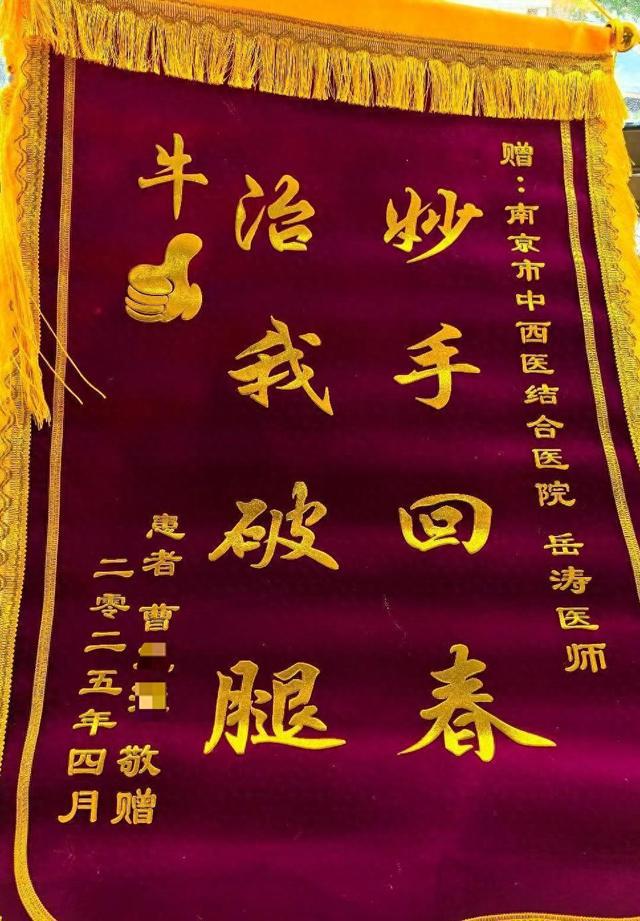 赠：南京市中西医结合医院 岳涛医师
妙手回春
治我破腿
牛
患者 曹 敬赠
二零二五年四月